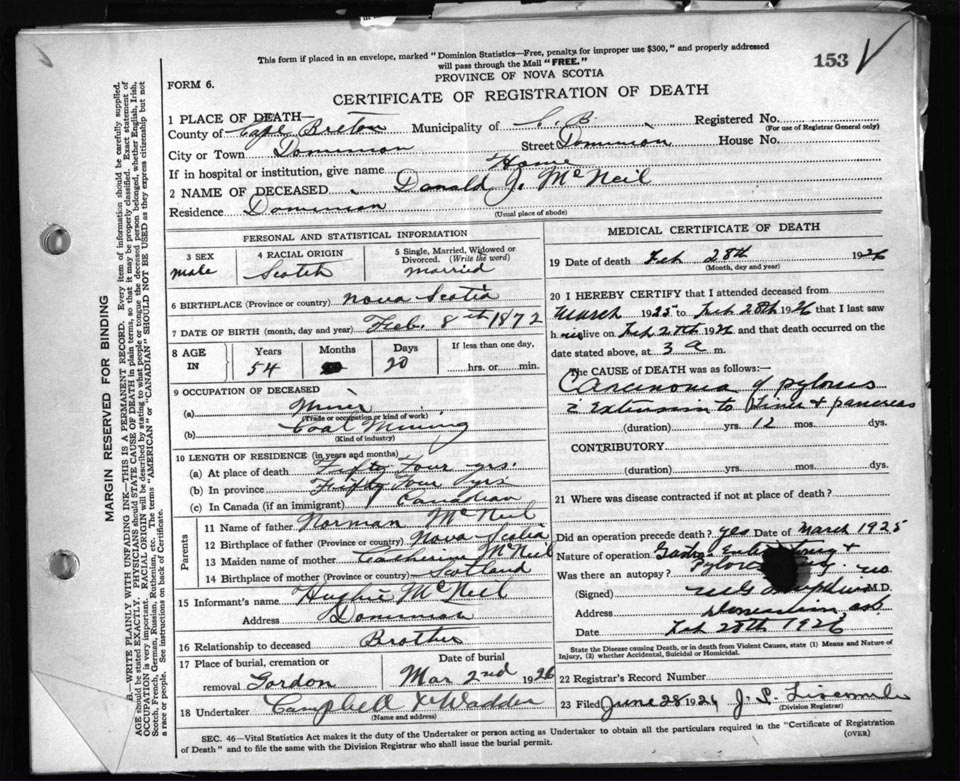 This form if placed in an envelope, marked "Dominion Statistics—Free, penalty for improper use $300," and properly addressed
will pass through the Mail "FREE."
153
FORM 6.
PROVINCE OF NOVA SCOTIA
CERTIFICATE OF REGISTRATION OF DEATH
1 PLACE OF DEATH—
County of Cape Breton Municipality of C. B. Registered No.
(For use of Registrar General only)
City or Town Dominion Street Dominion House No.
If in hospital or institution, give name Home
2 NAME OF DECEASED Donald J. McNeil
Residence Dominion
(Usual place of abode)
PERSONAL AND STATISTICAL INFORMATION
3 SEX
male
4 RACIAL ORIGIN
Scotch
5 Single, Married, Widowed or
Divorced (Write the word)
married
6 BIRTHPLACE (Province or country) Nova Scotia
7 DATE OF BIRTH (month, day and year) Feb. 8th 1872
8 AGE
IN
Years
54
Months
Days
20
If less than one day,
hrs. or min.
9 OCCUPATION OF DECEASED
(a) Miner
(Trade or occupation or kind of work)
(b) Coal Mining
(Kind of industry)
10 LENGTH OF RESIDENCE (in years and months)
(a) At place of death Fifty Four yrs.
(b) In province Fifty Four yrs
(c) In Canada (if an immigrant) Canadian
Parents
11 Name of father Norman McNeil
12 Birthplace of father (Province or country) Nova Scotia
13 Maiden name of mother Catherine McNeil
14 Birthplace of mother (Province or country) Scotland
15 Informant's name Hughie McNeil
Address Dominion
16 Relationship to deceased Brother
17 Place of burial, cremation or
removal Gordon
Date of burial
Mar 2nd 1926
18 Undertaker Campbell & Wadden
(Name and address)
MEDICAL CERTIFICATE OF DEATH
19 Date of death Feb 28th 1926
(Month, day and year)
20 I HEREBY CERTIFY that I attended deceased from
March 1925 to Feb 28th 1926 that I last saw
him alive on Feb 1926 and that death occurred on the
date stated above, at 3 a m.
The CAUSE of DEATH was as follows:—
Carcinoma of pylorus
c Extension to Liver & pancreas
(duration) yrs. 12 mos. dys.
CONTRIBUTORY
(duration) yrs. mos. dys.
21 Where was disease contracted if not at place of death?
Did an operation precede death? yes Date of March 1925
Nature of operation &
Was there an autopsy? no
(Signed) M.D.
Address
Date Feb 28th 1926
State the Disease causing Death, or in death from Violent Causes, state (1) Means and Nature of
Injury, (2) whether Accidental, Suicidal or Homicidal.
22 Registrar's Record Number
23 Filed June 28 1926 J. P.
(Division Registrar)
SEC. 46—Vital Statistics Act makes it the duty of the Undertaker or person acting as Undertaker to obtain all the particulars required in the "Certificate of Registration
of Death" and to file the same with the Division Registrar who shall issue the burial permit.
(OVER)
MARGIN RESERVED FOR BINDING
B.—WRITE PLAINLY WITH UNFADING INK—THIS IS A PERMANENT RECORD. Every item of information should be carefully supplied.
AGE should be stated EXACTLY. PHYSICIANS should STATE CAUSE OF DEATH in plain terms, so that it may be properly classified. Exact statement of
OCCUPATION is very important. RACIAL ORIGIN will be described by stating to what people or tongue the deceased person belonged, whether English, Irish,
Scotch, French, German, Russian, Ruthenian, etc. The terms "AMERICAN" or "CANADIAN" SHOULD NOT BE USED as they express citizenship but not
a race or people. See instructions on back of Certificate.